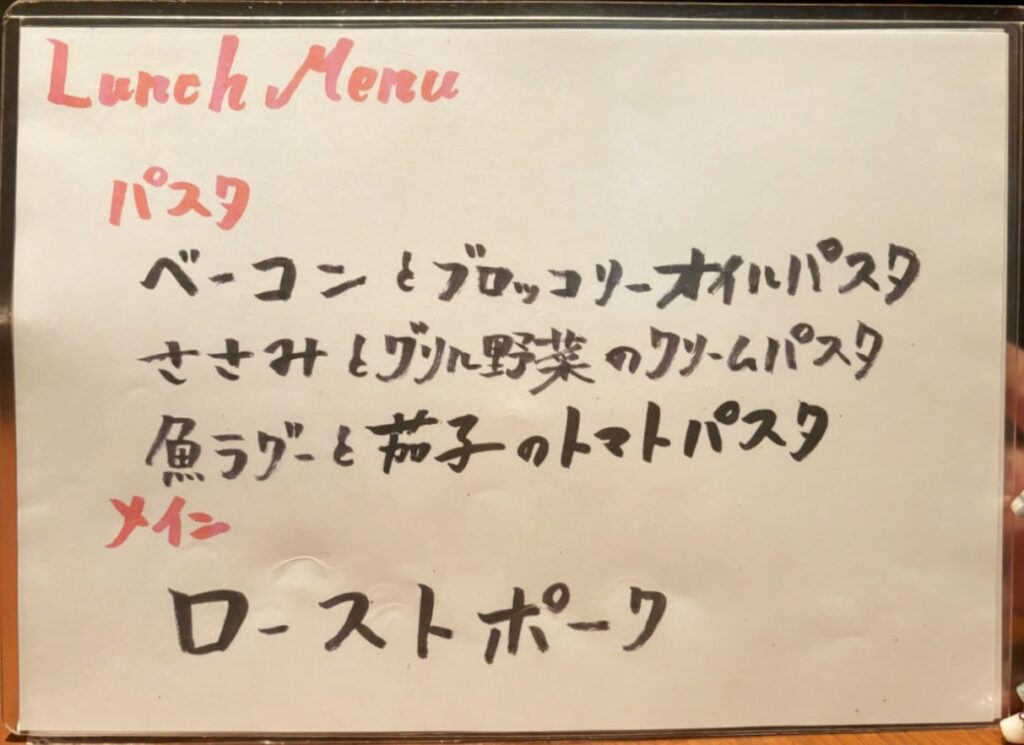 Lunch Menu
パスタ
ベーコンとブロッコリーオイルパスタ
ささみとグリル野菜のクリームパスタ
魚ラグーと茄子のトマトパスタ
メイン
ローストポーク